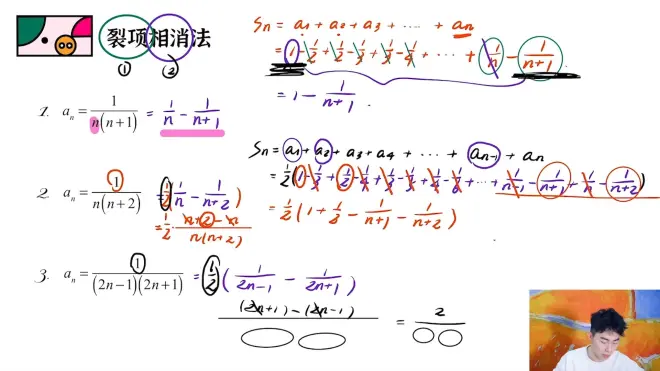 裂项相消法
① ②
1. aₙ = 1/(n(n+1)) = 1/n - 1/(n+1)
Sₙ = a₁ + a₂ + a₃ + ⋯⋯ + aₙ
= 1 - 1/2 + 1/2 - 1/3 + 1/3 - 1/4 + ⋯⋯ + 1/n - 1/(n+1)
= 1 - 1/(n+1).
2. aₙ = 1/(n(n+2)) = 1/2(1/n - 1/(n+2))
= 1/2 · (n+2-n)/(n(n+2))
Sₙ = a₁ + a₂ + a₃ + a₄ + ⋯⋯ + aₙ₋₁ + aₙ
= 1/2(1 + 1/2 - 1/(n+1) - 1/(n+2))
3. aₙ = 1/((2n-1)(2n+1)) = 1/2(1/(2n-1) - 1/(2n+1))
(2n+1)-(2n-1)
= 2